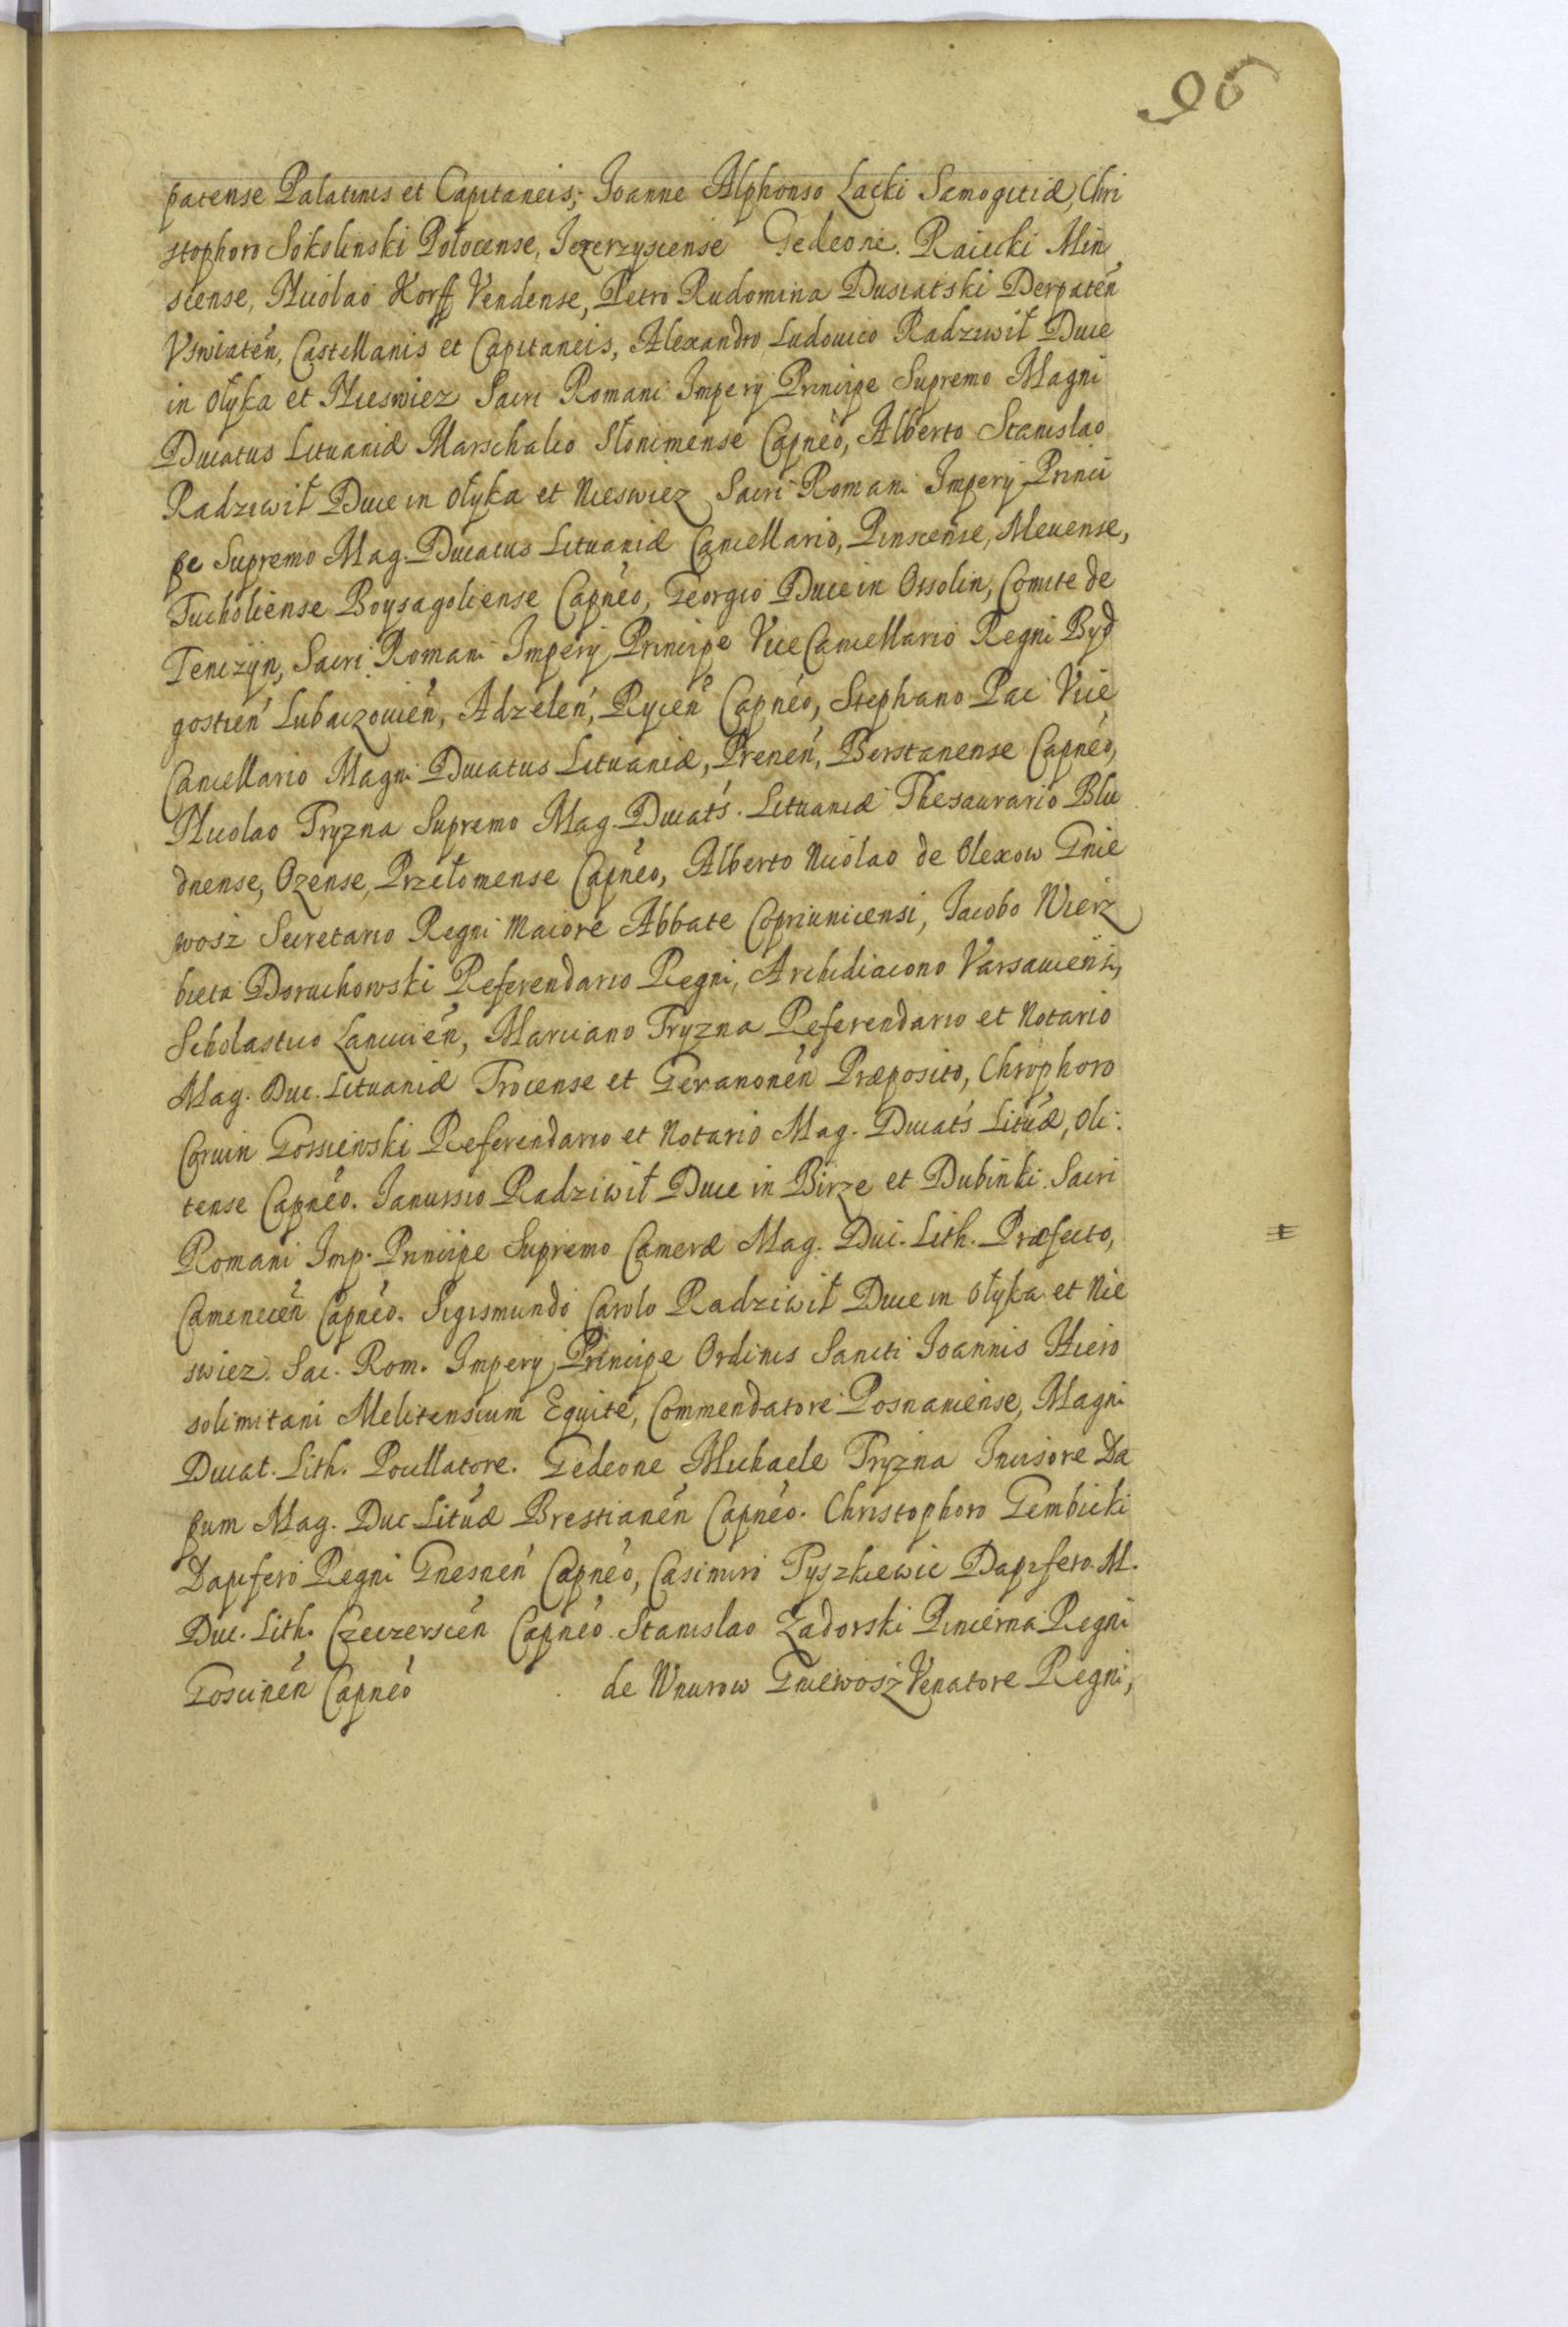 96
patense Palatinis et Capitaneis; Joanne Alphonso Lacki Samogitiæ, Chri
stophoro Sokolinski Połocense, Jezerzyscense Gedeone. Raiecki Min
scense, Nicolao Korff Vendense, Petro Rudomina Dusiatski Derpateń
Vświateń, Castellanis et Capitaneis, Alexandro Ludouico Radziwił Duce
in Ołyka et Nieswiez Sacri Romani Impery Principe Supremo Magni
Ducatus Lituaniæ Marschalco Słonimense Capneo, Alberto Stanislao
Radziwił Duce in Ołyka et Nieswiez Sacri Romani Impery Princi
pe Supremo Mag. Ducatus Lituaniæ Cancellario, Pinscense, Meuense,
Tucholiense Boysagoliense Capneo, Georgio Duce in Ossolin, Comite de
Tenczyn, Sacri Romani Impery Principe ViceCancellario Regni Byd
gostień Lubaczouień, Adzeleń, Rycień Capneo, Stephano Pac Vice
Cancellario Magni Ducatus Lituaniæ, Preneń, Berstanense Capneo,
Nicolao Tryzna Supremo Mag. Ducats. Lituaniæ Thesaurario Blu
dnense, Ozense, Przełomense Capneo, Alberto Nicolao de Olexow Gnie
wosz Secretario Regni Maiore Abbate Copriunicensi, Jacobo Wierz
bieta Doruchowski Referendario Regni, Archidiacono Varsauiensi,
Scholastico Lancicień, Marciano Tryzna Referendario et Notario
Mag. Duc. Lituaniæ Trocense et Geranoneń Præposito, Chrophoro
Coruin Gossiewski Referendario et Notario Mag. Ducats Lituæ, Oli:
tense Capneo. Janussio Radziwił Duce in Birze et Dubinki Sacri
Romani Imp. Principe Supremo Cameræ Mag. Duc. Lith. Præfecto,
Camenecen Capneo. Sigismundo Carolo Radziwił Duce in Ołyka et Nie
swiez. Sac. Rom. Impery Principe Ordinis Sancti Joannis Hiero
solimitani Melitensium Equite, Commendatore Posnaniense, Magni
Ducat. Lith. Pocillatore. Gedeone Michaele Tryzna Incisore Da
pum Mag. Duc Lituæ Brestianeń Capneo. Christophoro Gembicki
Dapifero Regni Gnesneń Capneo, Casimiro Tyszkiewic Dapifero M.
Duc. Lith. Czeczerscień Capneo Stanislao Zadorski Pincerna Regni
Goscineń Capneo de Wnurow Gniewosz Venatore Regni,